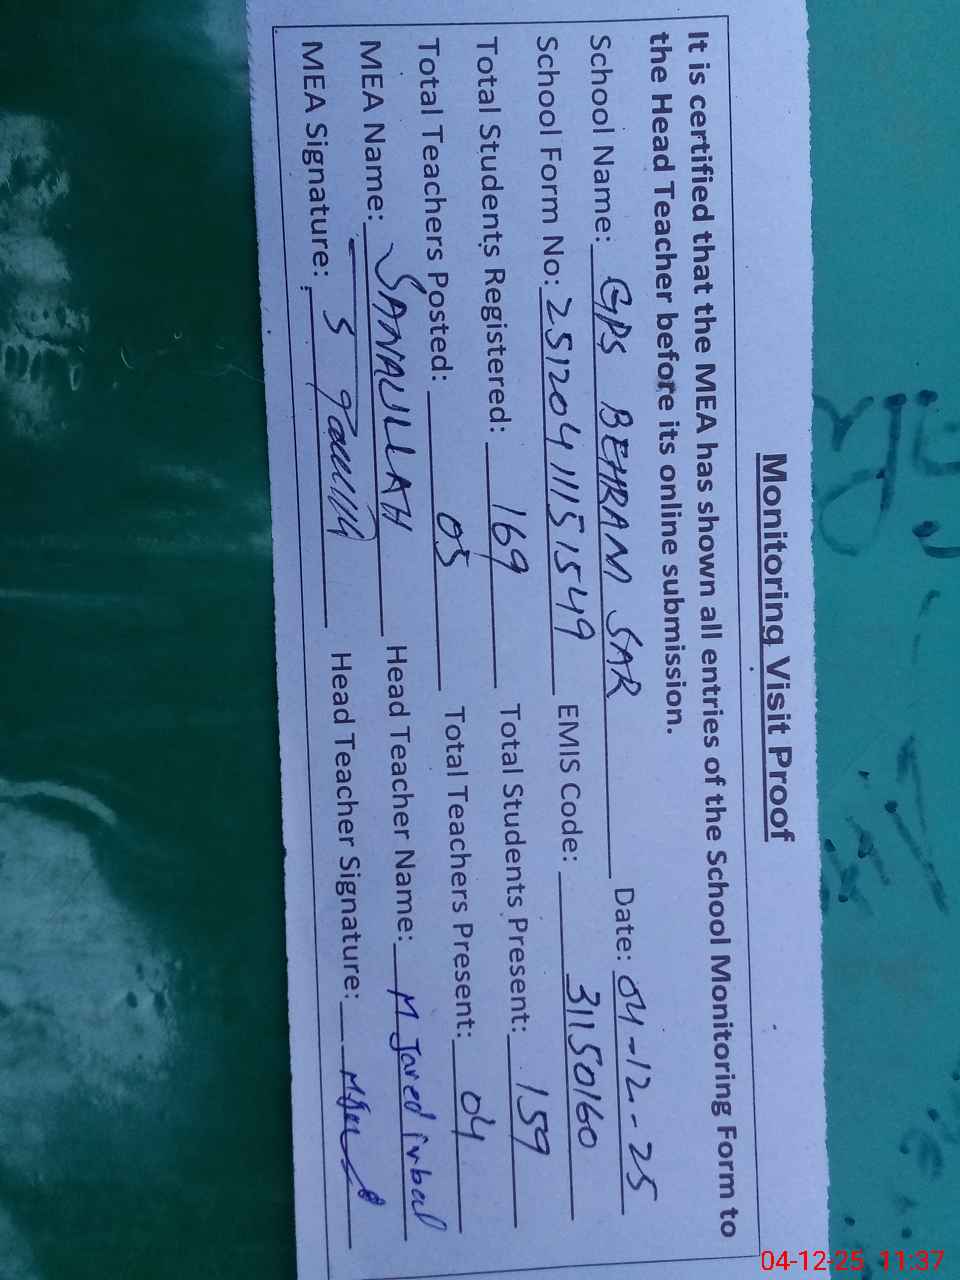 Monitoring Visit Proof
It is certified that the MEA has shown all entries of the School Monitoring Form to
the Head Teacher before its online submission.
School Name: GPS BEHRAM SAR Date: 04-12-25
School Form No: 25120411151549 EMIS Code: 31150160
Total Students Registered: 169 Total Students Present: 159
Total Teachers Posted: 05 Total Teachers Present: 04
MEA Name: SANAULLAH Head Teacher Name: M Javed
MEA Signature: Head Teacher Signature:
04-12-25 11:37